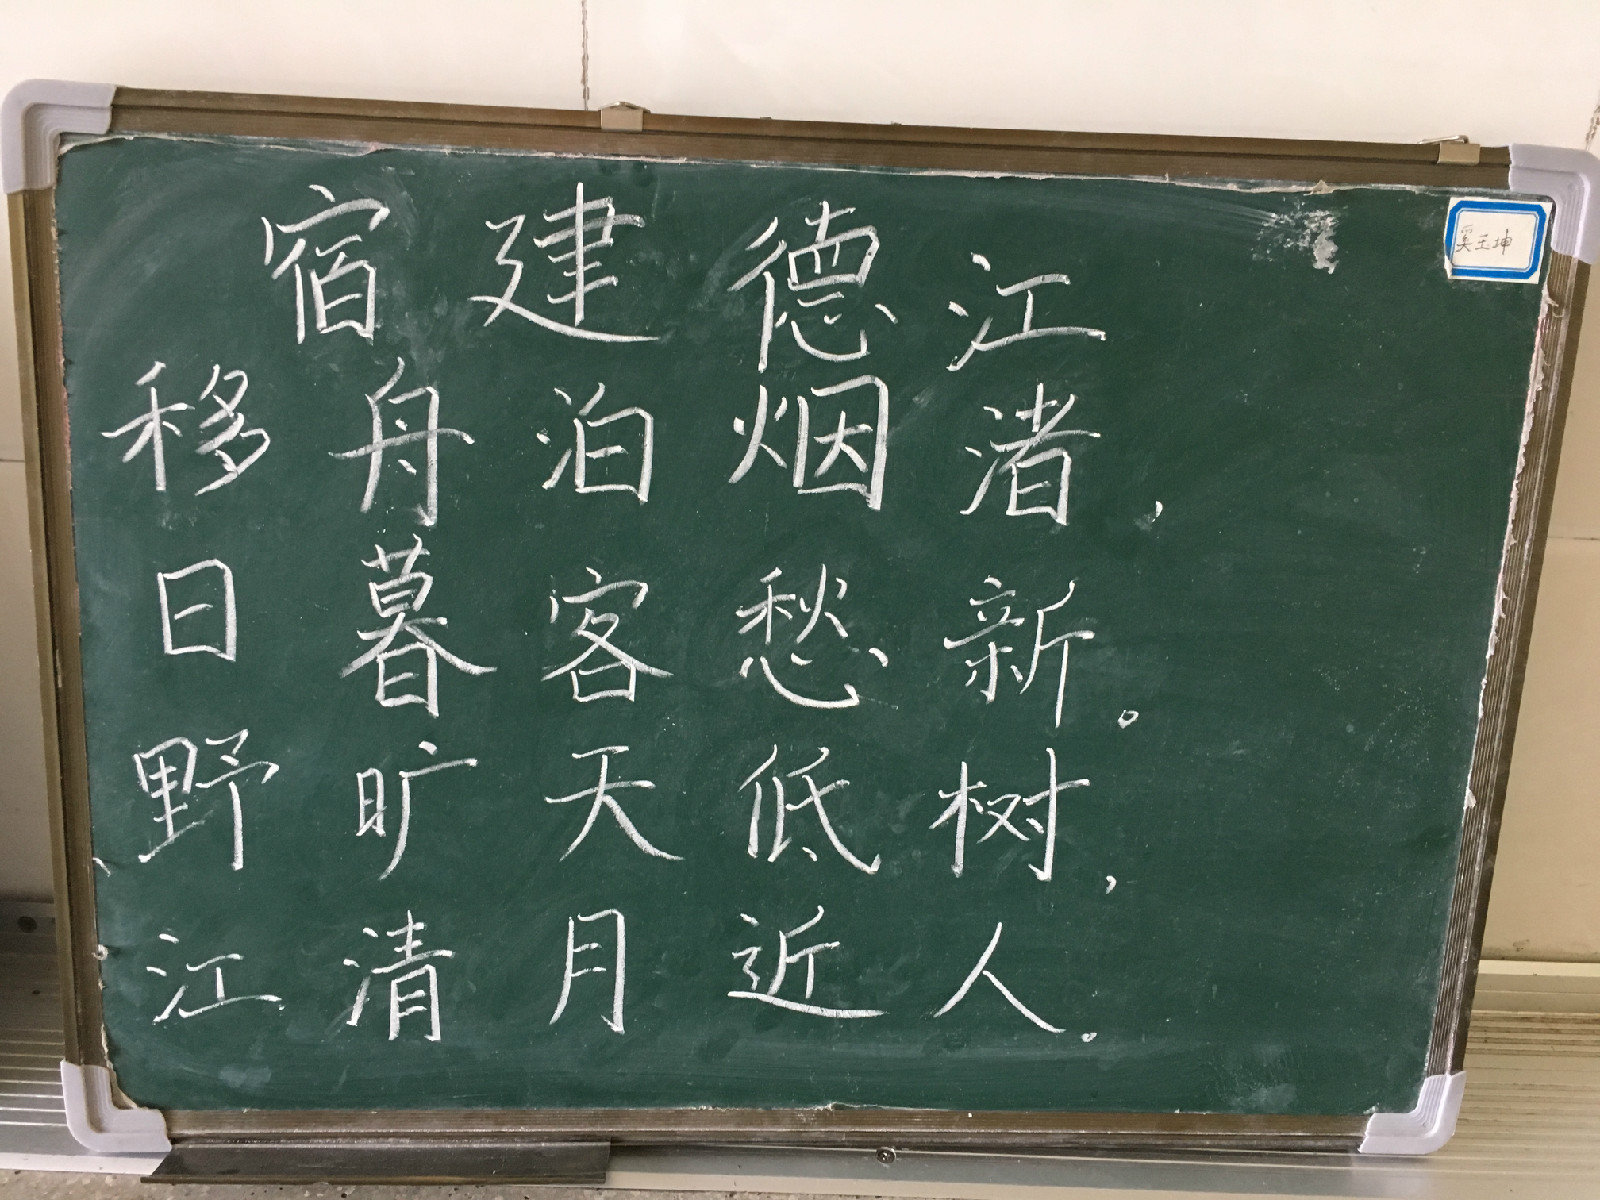 宿建德江
奚玉坤
移舟泊烟渚，
日暮客愁新。
野旷天低树，
江清月近人。